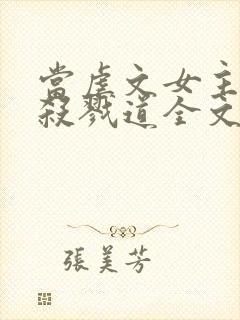 當虐文女主
殺戮道全文
張美芳